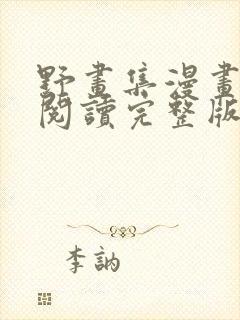 野畫集漫畫
閱讀完整版
李訥